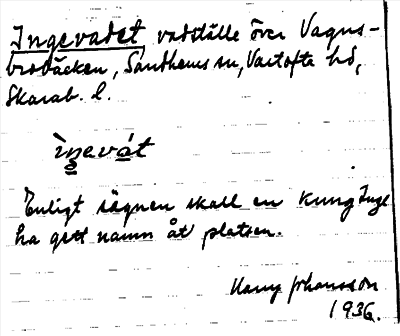 Ingevadet, vadställe över Vagns-
brobäcken, Sandhems sn, Vartofta hd,
Skarab. l.
ìŋevát
Enligt sägnen skall en kung Inge
ha gett namn åt platsen.
Harry Johansson
1936.